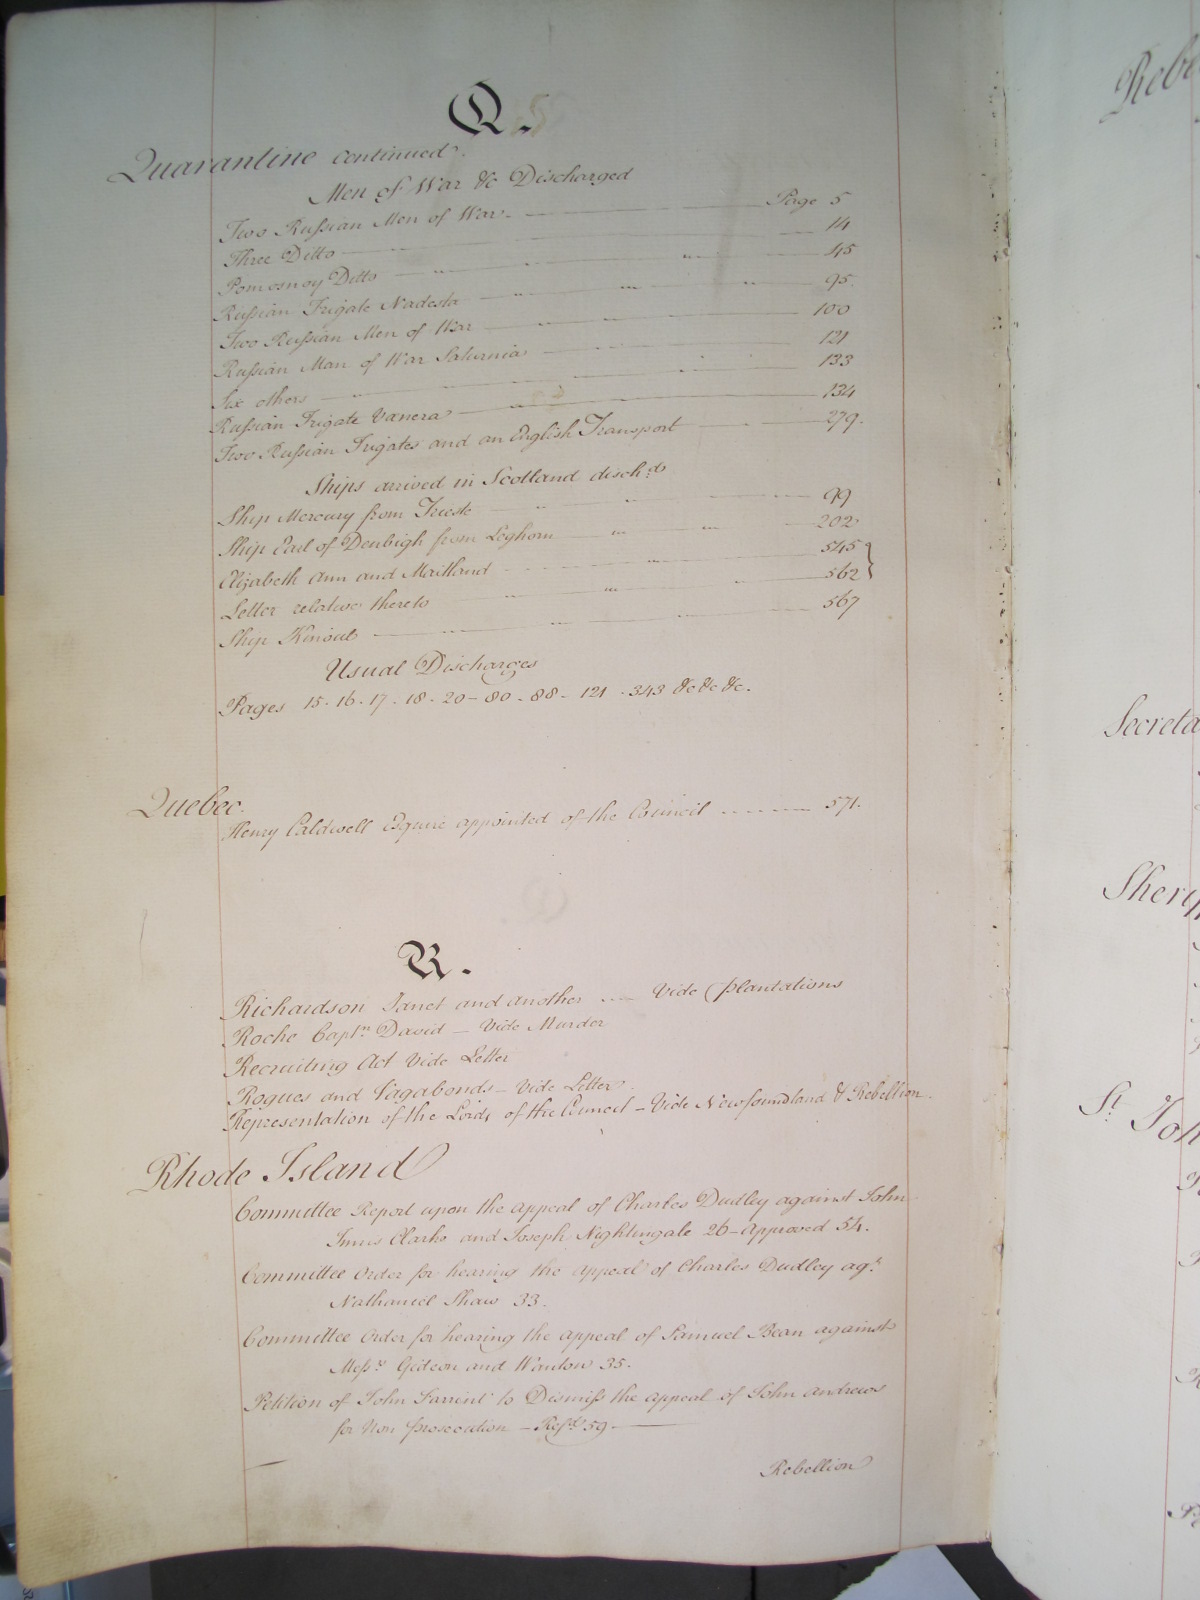 Q.
Quarantine continued.
Men of War &c Discharged
Two Russian Men of War - Page 5
Three Ditto 14
Pomosnoy Ditto 45
Russian Frigate Nadesta 95
Two Russian Men of War 100
Russian Man of War Saturnia 121
Six others 133
Russian Frigate Vanera 134
Two Russian Frigates and an English Transport 279.
Ships arrived in Scotland disch.d
Ship Mercury from Trieste 99
Ship Earl of Denbigh from Leghorn 202
Elizabeth Ann and Maitland 545
Letter relative thereto 562
Ship Kinoul 567
Usual Discharges
Pages 15 - 16 - 17 - 18 - 20 - 80 - 88 - 121 - 343 &c &c &c.
Quebec.
Henry Caldwell Esquire appointed of the Council 571.
R.
Richardson Janet and another Vide Plantations
Roche Capt.n David - Vide Murder
Recruiting Act Vide Letter
Rogues and Vagabonds - Vide Letter.
Representation of the Lords of the Council - Vide Newfoundland & Rebellion.
Rhode Island
Committee Report upon the appeal of Charles Dudley against John
Innis Clarke and Joseph Nightingale 26 - Approved 54.
Committee Order for hearing the appeal of Charles Dudley ag.t
Nathaniel Shaw 33.
Committee Order for hearing the appeal of Samuel Bean against
Mess.rs Gideon and Wanton 35.
Petition of John Tarrent to Dismiss the appeal of John Andrews
for Non prosecution - Ref.d 59.
Rebellion
Rebe
Secreta
Sherif
S.t Joh